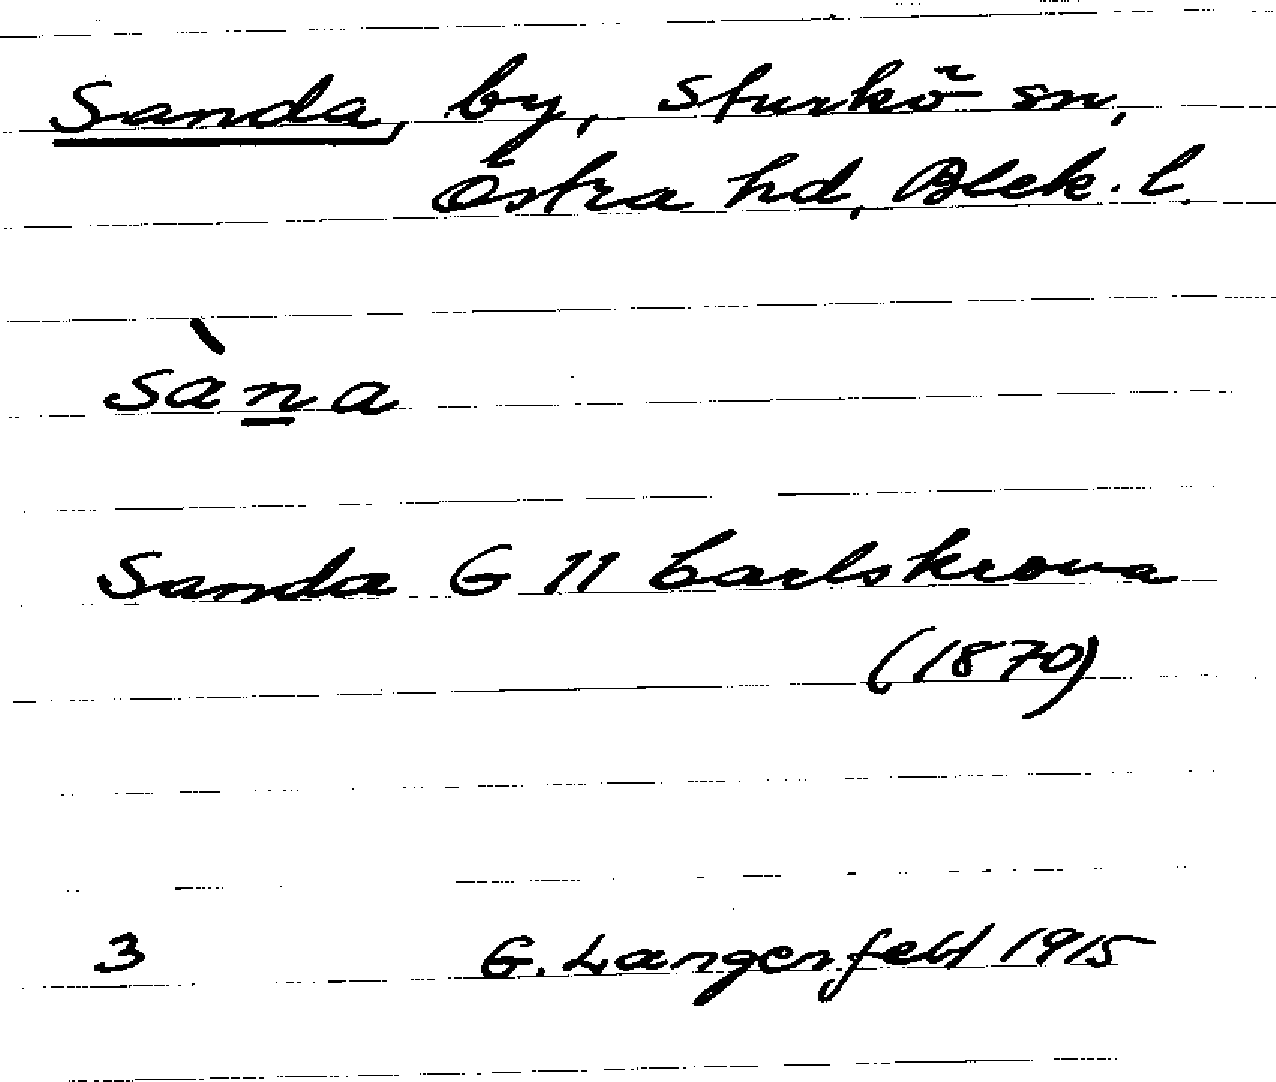 Sanda, by, Sturkö sn,
Östra hd, Blek. l.
sàna
Sanda G 11 Carlskrona
(1870)
3 G. Langenfelt 1915